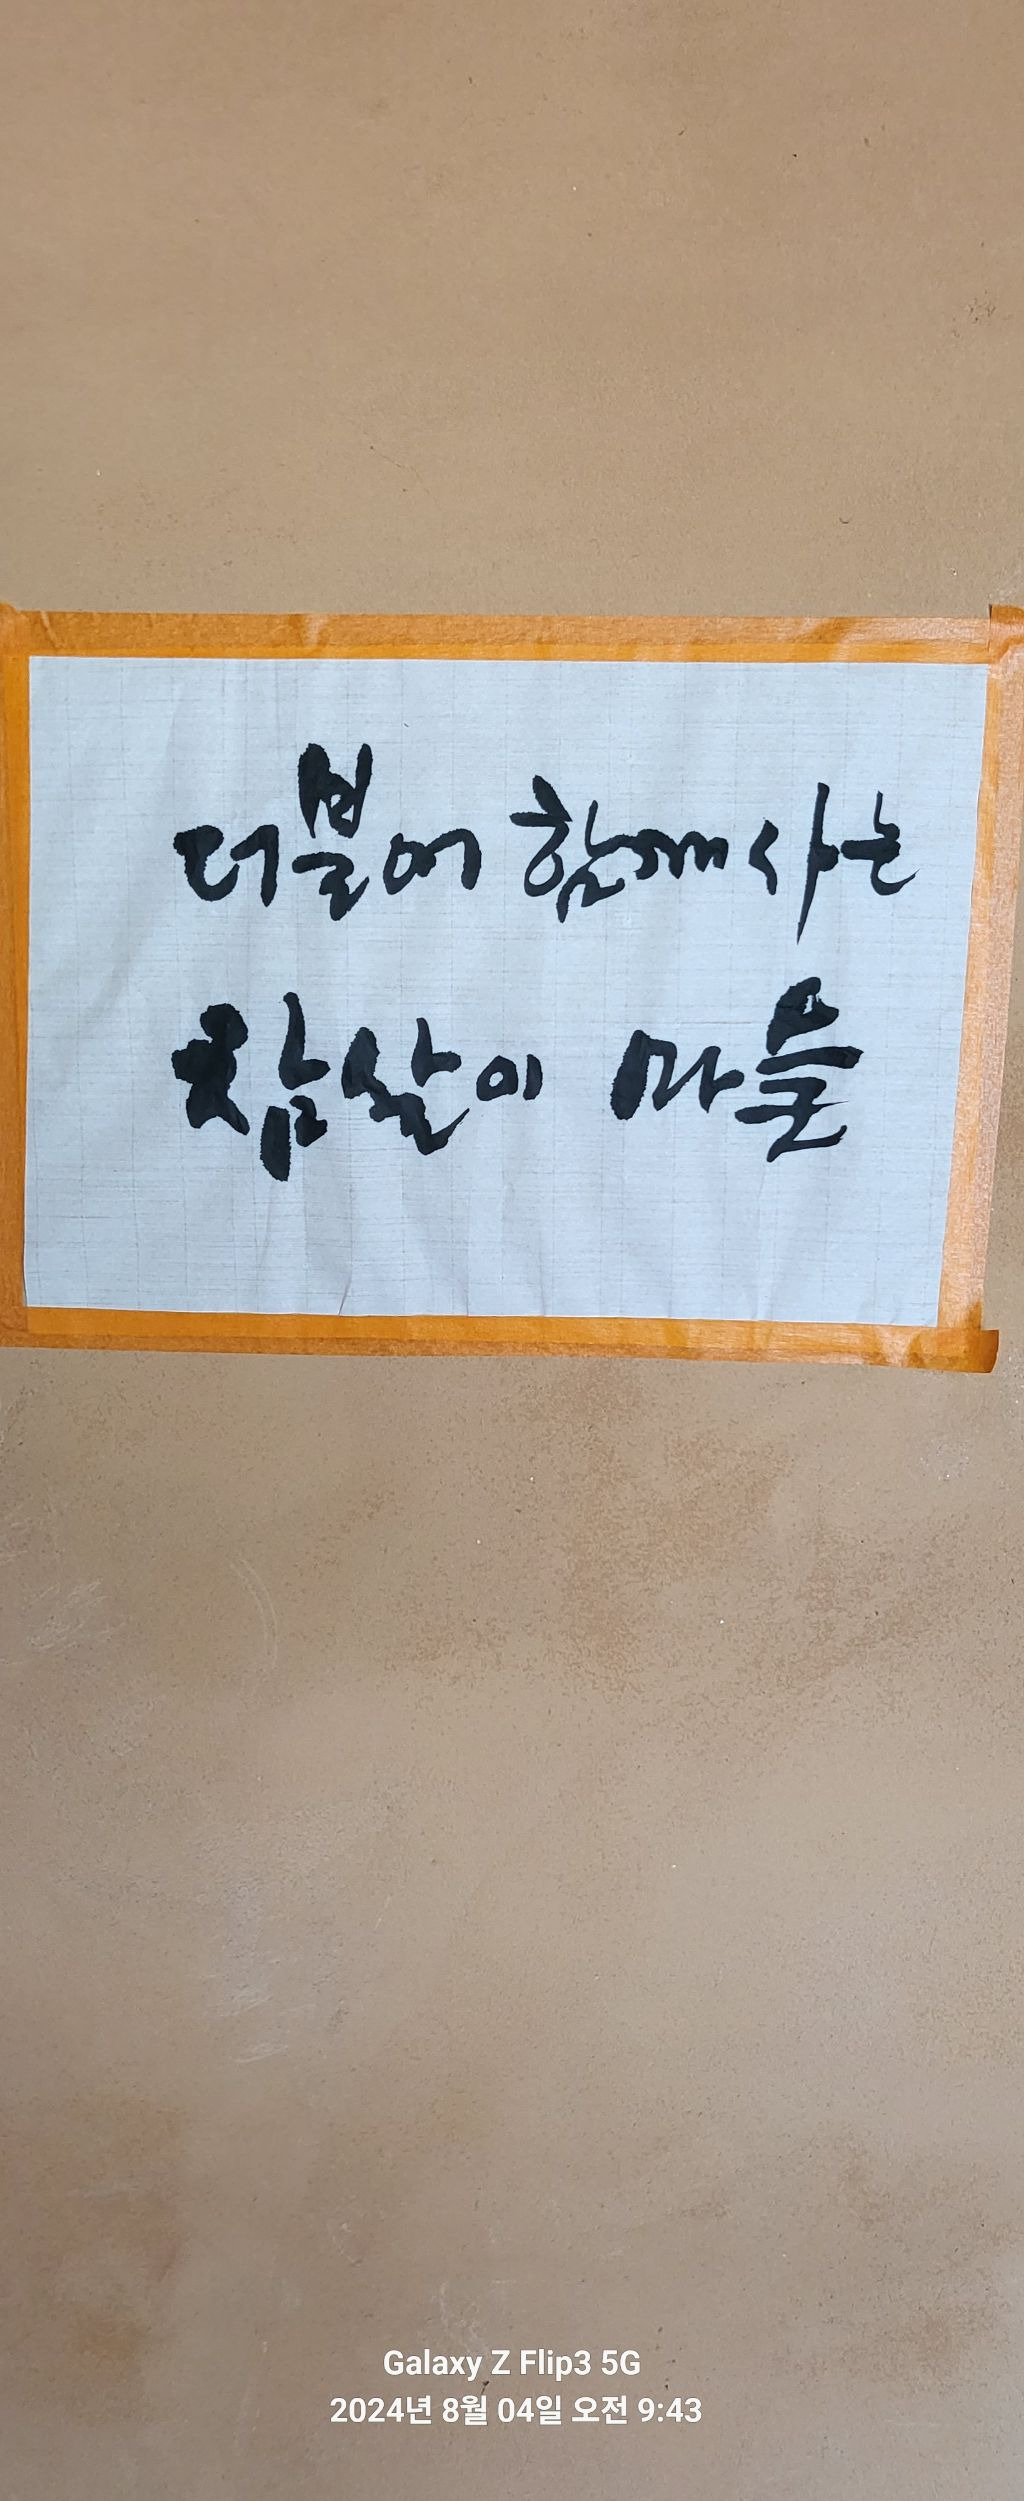 더불어 함께 사는
참살이 마을
Galaxy Z Flip3 5G
2024년 8월 04일 오전 9:43